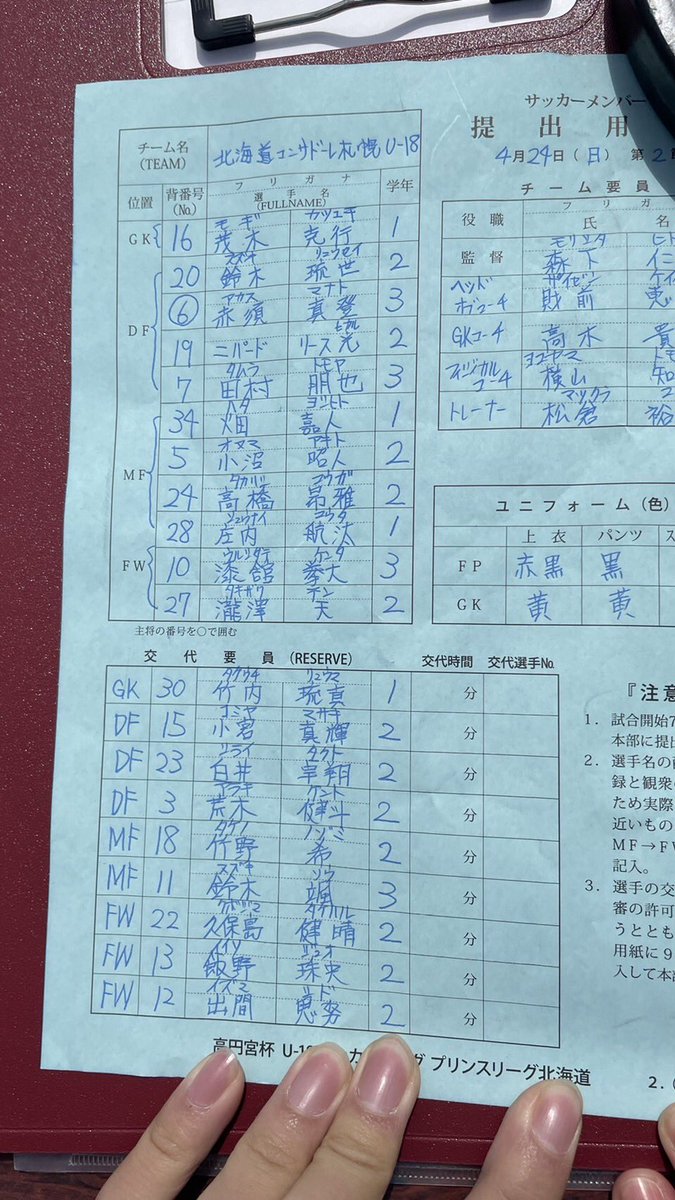 サッカーメンバー
提出用
4月24日(日) 第2
チーム名
(TEAM)
北海道コンサドーレ札幌 U-18
位置 背番号 (No.) フリガナ 選手名 (FULLNAME) 学年
GK 16 モギ カツユキ 茂木 克行 1
DF 20 スズキ リュウセイ 鈴木 琉世 2
⑥ アカス マナト 赤須 真登 3
19 ニバード リース ヒカル 光 2
7 タムラ トモヤ 田村 朋也 3
MF 34 ハタ ヨシヒト 畑 嘉人 1
5 オヌマ アキト 小沼 昭人 2
24 タカハシ コウガ 高橋 昂雅 2
28 ショウナイ コウタ 庄内 航汰 1
FW 10 ウルシダテ ケンタ 漆舘 拳大 3
27 タキザワ テン 瀧澤 天 2
主将の番号を○で囲む
交代要員 (RESERVE) 交代時間 交代選手No.
GK 30 タケウチ リュウマ 竹内 琉真 1 分
DF 15 コミヤ マサキ 小宮 真輝 2 分
DF 23 白井 タクト 2 分
DF 3 アラキ ケント 荒木 健斗 2 分
MF 18 タケノ ノゾミ 竹野 希 2 分
MF 11 スズキ ソウ 鈴木 颯 3 分
FW 22 クボジマ タケハル 久保島 健晴 2 分
FW 13 イイノ ジュオ 飯野 珠央 2 分
FW 12 イズマ 出間 2 分
チーム要員
役職 フリガナ 氏名
監督 モリシタ 森下 仁
ヘッドオブコーチ ザイゼン 財前 恵
GKコーチ 高木 貴
フィジカルコーチ ヨコヤマ トモ 横山 知
トレーナー マツクラ 松倉 裕
ユニフォーム(色)
上衣 パンツ
FP 赤黒 黒
GK 黄 黄
『注意
1. 試合開始7
本部に提出
2. 選手名の
録と観衆の
ため実際
近いもの
MF→FW
記入。
3. 選手の交
審の許可
うととも
用紙に9
入して本部
高円宮杯 プリンスリーグ北海道
2.